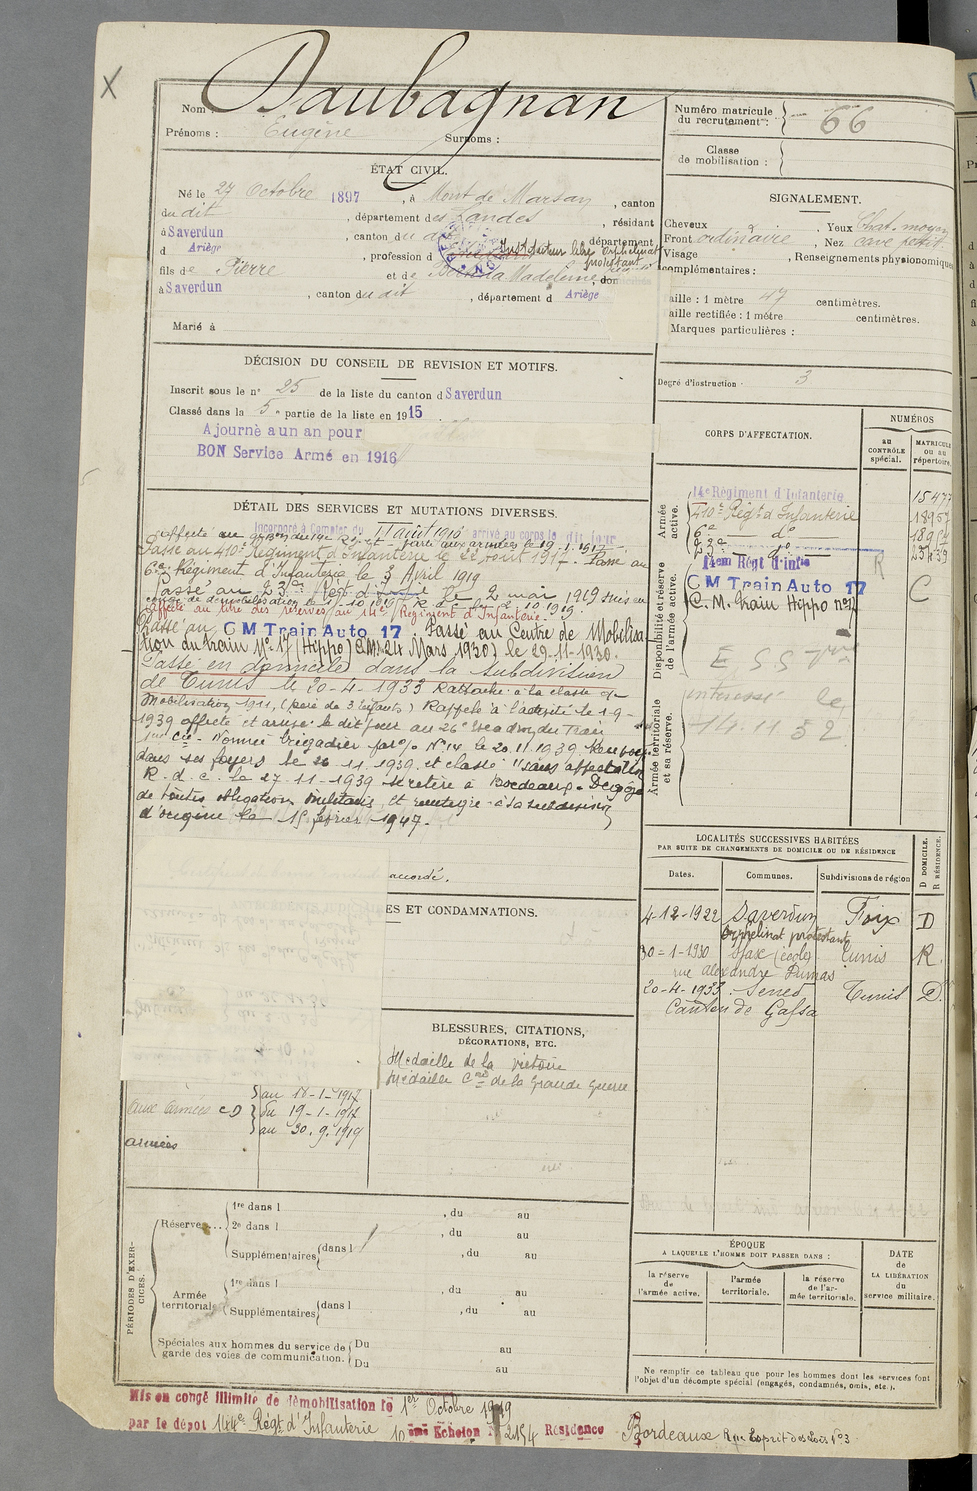 X
Nom : Daubagnan
Prénoms : Eugène Surnoms :
Numéro matricule du recrutement : 66
Classe de mobilisation :
ÉTAT CIVIL.
Né le 27 Octobre 1897, à Mont de Marsan, canton
du dit, département des Landes, résidant
à Saverdun, canton du dit, département
d Ariège, profession d Instituteur libre Orphelinat protestant
fils de Pierre et de Madeleine, dom
à Saverdun, canton du dit, département d Ariège
Marié à
SIGNALEMENT.
Cheveux , Yeux Chat. moyen
Front ordinaire , Nez cave petit
Visage , Renseignements physionomiques
complémentaires :
aille : 1 mètre 47 centimètres.
aille rectifiée : 1 mètre centimètres.
Marques particulières :
Degré d'instruction : 3
DÉCISION DU CONSEIL DE REVISION ET MOTIFS.
Inscrit sous le n° 25 de la liste du canton d Saverdun
Classé dans la 5e partie de la liste en 1915.
Ajourné a un an pour
BON Service Armé en 1916
DÉTAIL DES SERVICES ET MUTATIONS DIVERSES.
Incorporé à Compter du 11 août 1916 arrivé au corps le dit jour
affecté au du 14e Régt parti aux armées le 19.1.1917
Passé au 410e Régiment d'Infanterie le 22 août 1917. Passé au
6e Régiment d'Infanterie le 3 Avril 1919
Passé au 23e Régt d' le 2 mai 1919 mis en
congé de démobilisation le 1-10-1919
affecté au titre des réserves au 14e Régiment d'Infanterie.
Passé au CM Train Auto 17 Passé au Centre de Mobilisa-
tion du train N° 17 (Hippo) (C.M. 24 Mars 1930) le 29-11-1930.
Passé en domicile dans la subdivision
de Tunis le 20-4-1933 Rattaché à la classe de
mobilisation 1911, (père de 3 enfants) Rappelé à l'activité le 19-
1939 affecté et arrivé le dit jour au 26e Escadron du Train
Cie. Nommé brigadier par o/ N° 14 le 20.11.1939. Renvoyé
dans ses foyers le 26.11.1939 et classé "sans affectation"
R. d. c. le 27-11-1939 se retire à Bordeaux. Dégagé
de toutes obligations militaires, et réintègre sa subdivision
d'origine le 15 février 1947.
CORPS D'AFFECTATION.
NUMÉROS
au CONTRÔLE spécial.
MATRICULE ou au répertoire.
Armée active.
14e Régiment d'Infanterie 15477
410e Régt d'Infanterie
6e do
23e do
Disponibilité et réserve de l'armée active.
14em Régt d'infie R
CM Train Auto 17 C
C. M. Train Hippo n° 17
Armée territoriale et sa réserve.
intéressé le
14.11.52
accordé.
ES ET CONDAMNATIONS.
BLESSURES, CITATIONS,
DÉCORATIONS, ETC.
Médaille de la victoire
Médaille Cve de la Grande Guerre
au 18-1-1917
Aux armées CD du 19-1-1917
au 30.9.1919
armées
LOCALITÉS SUCCESSIVES HABITÉES
PAR SUITE DE CHANGEMENTS DE DOMICILE OU DE RÉSIDENCE
D DOMICILE. R RÉSIDENCE.
Dates. Communes. Subdivisions de région
4-12-1922 Saverdun Foix D
Orphelinat protestant
30-1-1930 Sfax (école) Tunis R.
rue Alexandre Dumas
20-4-1933 Sened Tunis D.
Canton de Gafsa
PÉRIODES D'EXERCICES.
Réserve... 1re dans l , du au
2e dans l , du au
Supplémentaires dans l , du au
Armée territoriale 1re dans l , du au
Supplémentaires dans l , du au
Spéciales aux hommes du service de garde des voies de communication. Du au
Du au
ÉPOQUE
A LAQUELLE L'HOMME DOIT PASSER DANS :
la réserve de l'armée active.
l'armée territoriale.
la réserve de l'armée territoriale.
DATE de LA LIBÉRATION du service militaire.
Ne remplir ce tableau que pour les hommes dont les services font
l'objet d'un décompte spécial (engagés, condamnés, omis, etc.).
Mis en congé illimité de démobilisation le 1er Octobre 1919
par le dépôt 144e Régt d'Infanterie 10ème Echelon N° 2154 Résidence Bordeaux Rue Esprit des Lois N° 3